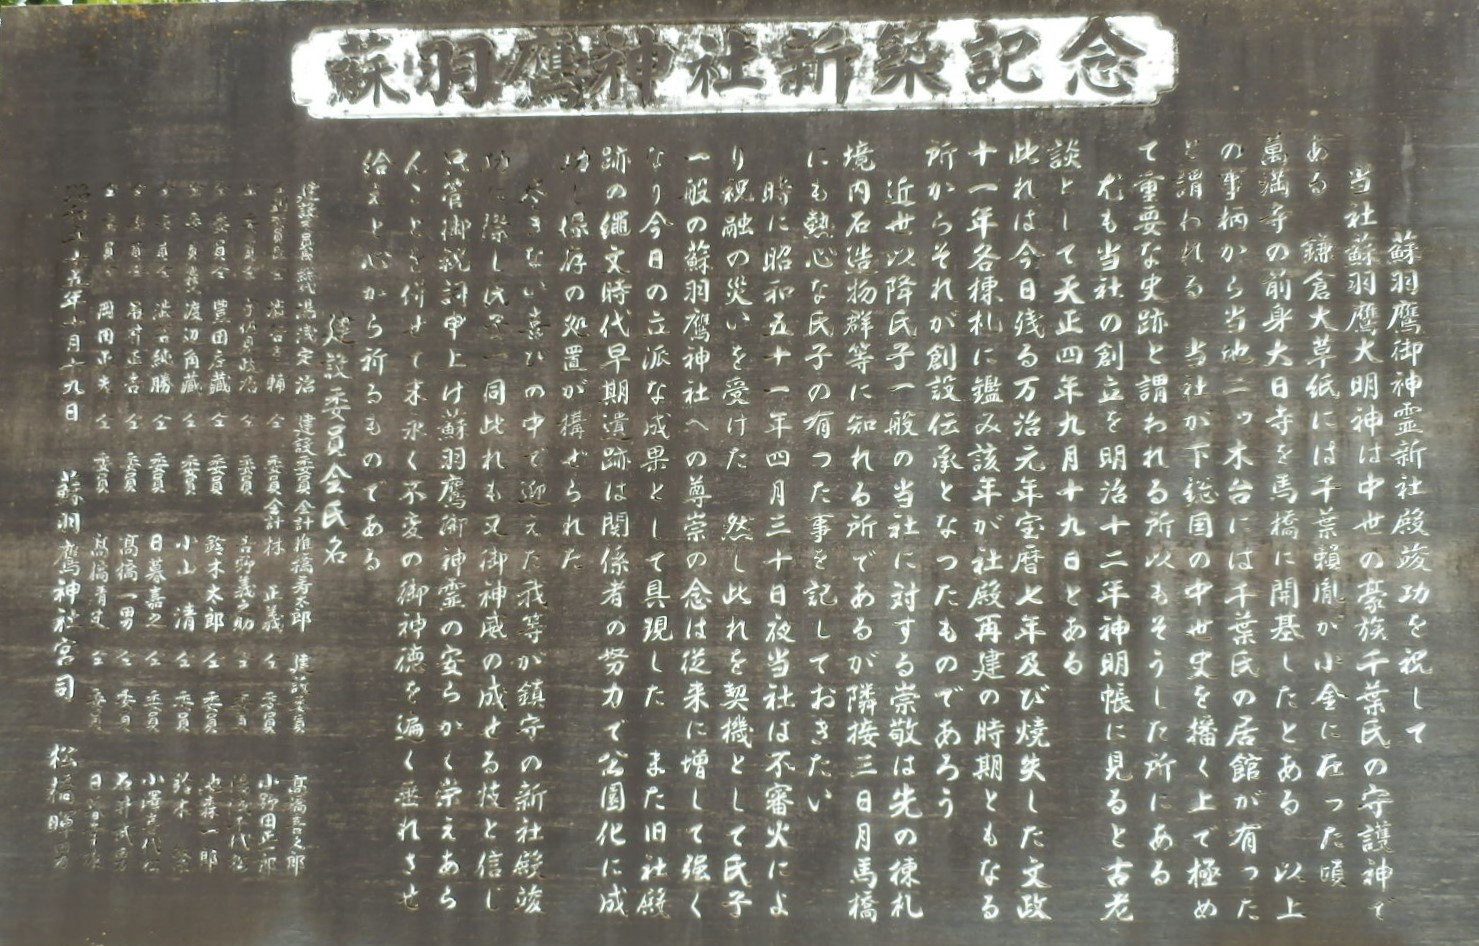 蘇羽鷹神社新築記念
蘇羽鷹御神霊新社殿竣功を祝して
当社蘇羽鷹大明神は中世の豪族千葉氏の守護神で
ある　鎌倉大草紙には千葉頼胤が小金に在った頃
萬満寺の前身大日寺を馬橋に開基したとある　以上
の事柄から当地二ッ木台には千葉氏の居館が有った
と謂われる　当社が下総国の中世史を播く上で極め
て重要な史跡と謂われる所以もそうした所にある
尤も当社の創立を明治十二年神明帳に見ると古老
談として天正四年九月十九日とある
此れは今日残る万治元年宝暦七年及び焼失した文政
十一年各棟札に鑑み該年が社殿再建の時期ともなる
所からそれが創設伝承となつたものであろう
近世以降氏子一般の当社に対する崇敬は先の棟札
境内石造物群等に知れる所であるが隣接三日月馬橋
にも熱心な氏子の有った事を記しておきたい
時に昭和五十一年四月三十日夜当社は不審火によ
り祝融の災いを受けた　然し此れを契機として氏子
一般の蘇羽鷹神社への尊崇の念は従来に増して強く
なり今日の立派な成果として具現した　また旧社殿
跡の縄文時代早期遺跡は関係者の努力で公園化に成
功し保存の処置が構ぜられた
尽きない喜びの中で迎えた我等が鎮守の新社殿竣
功に際し氏子一同此れも又御神威の成せる技と信じ
只管御祝詞申上げ蘇羽鷹御神霊の安らかく栄えあら
んことを併せて末永く不変の御神徳を遍く垂れさせ
給えと心から祈るものである
建設委員会氏名
建設委員長総代　湯浅定治　建設委員会計　推橋寿太郎　建設委員　高橋吉之郎
仝　委員会計　林　正義　仝　委員　小野田正郎
仝　委員　吉野義之助　仝　委員
仝　委員　豊田彦蔵　仝　委員　鈴木太郎　仝　委員
渡辺角蔵　仝　委員　小山　清　仝　委員　鈴木
仝　委員　純勝　仝　委員　日暮嘉之　仝　委員
仝　委員　正吉　仝　委員　高橋一男　仝　委員　石井武男
仝　委員　岡田正夫　仝　委員　高橋　仝　委員
年十月十九日　蘇羽鷹神社宮司　松橋暉男